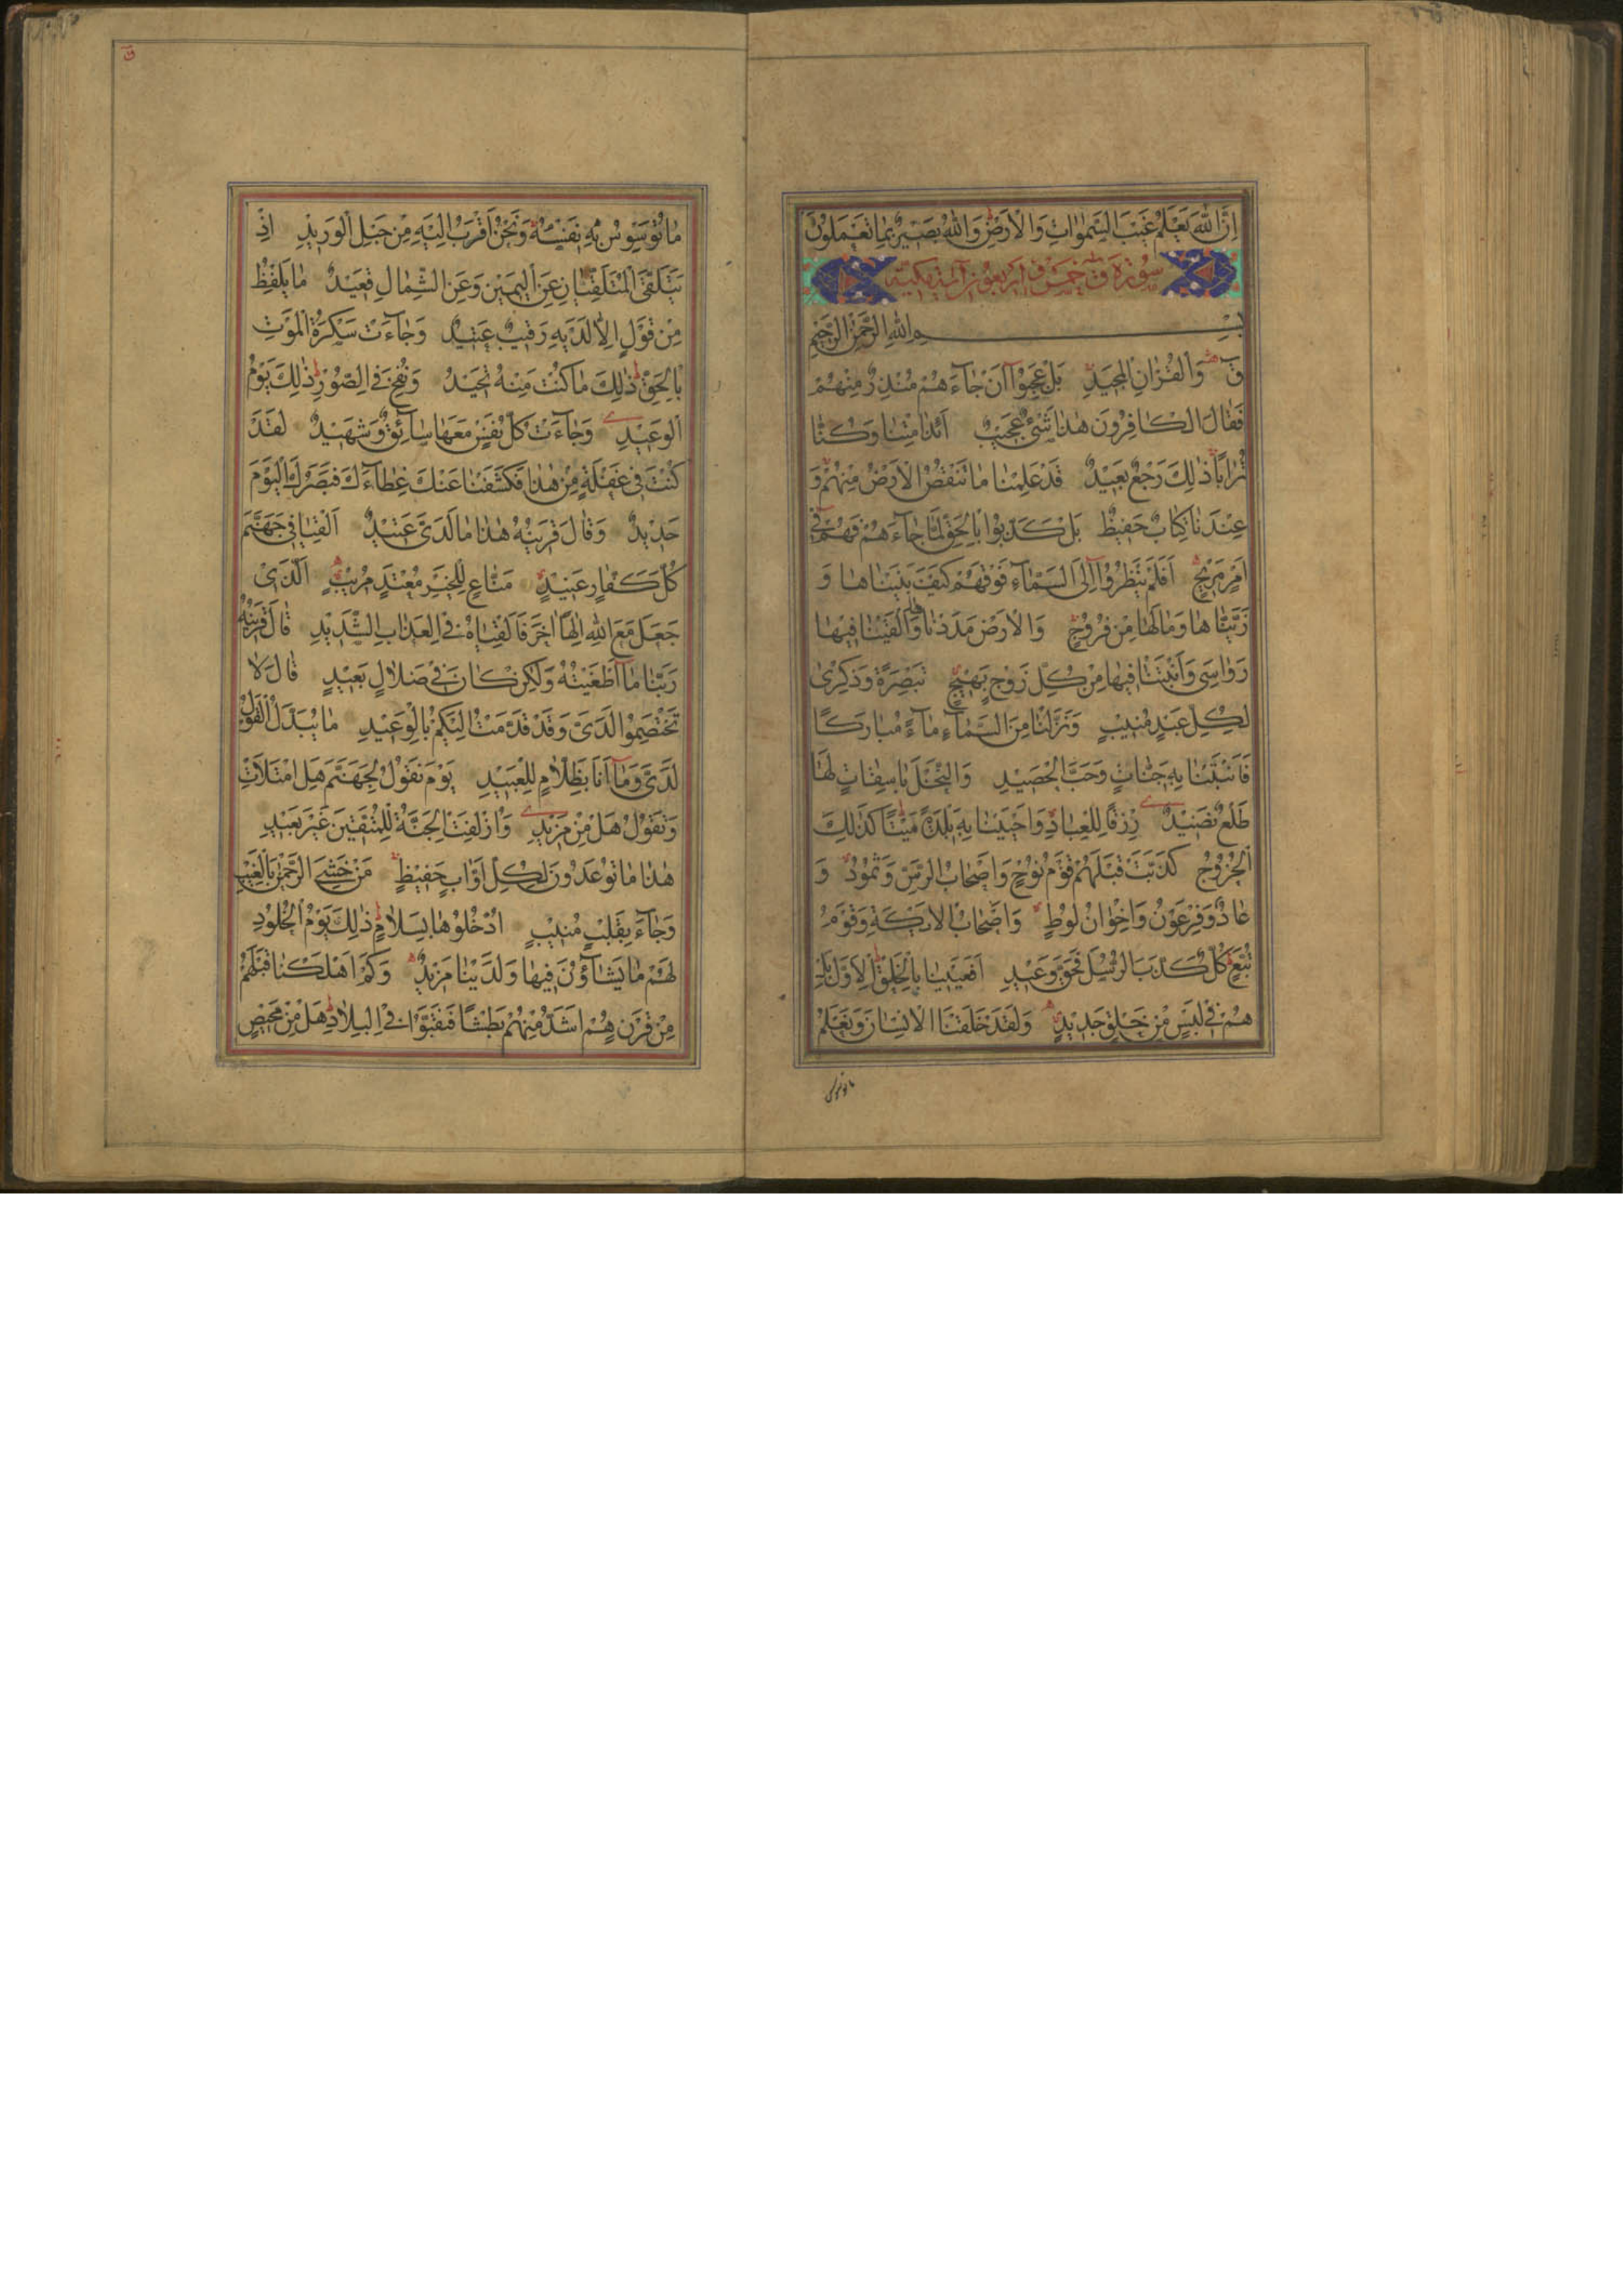 اِنَّ اللّٰهَ يَعْلَمُ غَيْبَ السَّمٰوَاتِ وَالْاَرْضِ وَاللّٰهُ بَصِيْرٌ بِمَا تَعْمَلُوْنَ
سُوْرَة ق خمس و اربعون آية مكية
بِسْمِ اللّٰهِ الرَّحْمٰنِ الرَّحِيْمِ
قٓ وَالْقُرْاٰنِ الْمَجِيْدِ بَلْ عَجِبُوْٓا اَنْ جَآءَهُمْ مُنْذِرٌ مِنْهُمْ
فَقَالَ الْكَافِرُوْنَ هٰذَا شَيْءٌ عَجِيْبٌ اَئِذَا مِتْنَا وَكُنَّا
تُرَابًا ذٰلِكَ رَجْعٌ بَعِيْدٌ قَدْ عَلِمْنَا مَا تَنْقُصُ الْاَرْضُ مِنْهُمْ وَ
عِنْدَنَا كِتَابٌ حَفِيْظٌ بَلْ كَذَّبُوْا بِالْحَقِّ لَمَّا جَآءَهُمْ فَهُمْ فِيْٓ
اَمْرٍ مَرِيْجٍ اَفَلَمْ يَنْظُرُوْٓا اِلَى السَّمَآءِ فَوْقَهُمْ كَيْفَ بَنَيْنَاهَا وَ
زَيَّنَّاهَا وَمَا لَهَا مِنْ فُرُوْجٍ وَالْاَرْضَ مَدَدْنَاهَا وَاَلْقَيْنَا فِيْهَا
رَوَاسِيَ وَاَنْبَتْنَا فِيْهَا مِنْ كُلِّ زَوْجٍ بَهِيْجٍ تَبْصِرَةً وَذِكْرٰى
لِكُلِّ عَبْدٍ مُنِيْبٍ وَنَزَّلْنَا مِنَ السَّمَآءِ مَآءً مُبَارَكًا
فَاَنْبَتْنَا بِهٖ جَنَّاتٍ وَحَبَّ الْحَصِيْدِ وَالنَّخْلَ بَاسِقَاتٍ لَهَا
طَلْعٌ نَضِيْدٌ رِزْقًا لِلْعِبَادِ وَاَحْيَيْنَا بِهٖ بَلْدَةً مَيْتًا كَذٰلِكَ
الْخُرُوْجُ كَذَّبَتْ قَبْلَهُمْ قَوْمُ نُوْحٍ وَاَصْحَابُ الرَّسِّ وَثَمُوْدُ وَ
عَادٌ وَفِرْعَوْنُ وَاِخْوَانُ لُوْطٍ وَاَصْحَابُ الْاَيْكَةِ وَقَوْمُ
تُبَّعٍ كُلٌّ كَذَّبَ الرُّسُلَ فَحَقَّ وَعِيْدِ اَفَعَيِيْنَا بِالْخَلْقِ الْاَوَّلِ بَلْ
هُمْ فِيْ لَبْسٍ مِنْ خَلْقٍ جَدِيْدٍ وَلَقَدْ خَلَقْنَا الْاِنْسَانَ وَنَعْلَمُ
ما توسوس
مَا تُوَسْوِسُ بِهٖ نَفْسُهٗ وَنَحْنُ اَقْرَبُ اِلَيْهِ مِنْ حَبْلِ الْوَرِيْدِ اِذْ
يَتَلَقَّى الْمُتَلَقِّيَانِ عَنِ الْيَمِيْنِ وَعَنِ الشِّمَالِ قَعِيْدٌ مَا يَلْفِظُ
مِنْ قَوْلٍ اِلَّا لَدَيْهِ رَقِيْبٌ عَتِيْدٌ وَجَآءَتْ سَكْرَةُ الْمَوْتِ
بِالْحَقِّ ذٰلِكَ مَا كُنْتَ مِنْهُ تَحِيْدُ وَنُفِخَ فِي الصُّوْرِ ذٰلِكَ يَوْمُ
الْوَعِيْدِ وَجَآءَتْ كُلُّ نَفْسٍ مَعَهَا سَآئِقٌ وَشَهِيْدٌ لَقَدْ
كُنْتَ فِيْ غَفْلَةٍ مِنْ هٰذَا فَكَشَفْنَا عَنْكَ غِطَآءَكَ فَبَصَرُكَ الْيَوْمَ
حَدِيْدٌ وَقَالَ قَرِيْنُهٗ هٰذَا مَا لَدَيَّ عَتِيْدٌ اَلْقِيَا فِيْ جَهَنَّمَ
كُلَّ كَفَّارٍ عَنِيْدٍ مَنَّاعٍ لِلْخَيْرِ مُعْتَدٍ مُرِيْبٍ اَلَّذِيْ
جَعَلَ مَعَ اللّٰهِ اِلٰهًا اٰخَرَ فَاَلْقِيَاهُ فِي الْعَذَابِ الشَّدِيْدِ قَالَ قَرِيْنُهٗ
رَبَّنَا مَآ اَطْغَيْتُهٗ وَلٰكِنْ كَانَ فِيْ ضَلَالٍ بَعِيْدٍ قَالَ لَا
تَخْتَصِمُوْا لَدَيَّ وَقَدْ قَدَّمْتُ اِلَيْكُمْ بِالْوَعِيْدِ مَا يُبَدَّلُ الْقَوْلُ
لَدَيَّ وَمَآ اَنَا بِظَلَّامٍ لِلْعَبِيْدِ يَوْمَ نَقُوْلُ لِجَهَنَّمَ هَلِ امْتَلَاْتِ
وَتَقُوْلُ هَلْ مِنْ مَزِيْدٍ وَاُزْلِفَتِ الْجَنَّةُ لِلْمُتَّقِيْنَ غَيْرَ بَعِيْدٍ
هٰذَا مَا تُوْعَدُوْنَ لِكُلِّ اَوَّابٍ حَفِيْظٍ مَنْ خَشِيَ الرَّحْمٰنَ بِالْغَيْبِ
وَجَآءَ بِقَلْبٍ مُنِيْبٍ ادْخُلُوْهَا بِسَلَامٍ ذٰلِكَ يَوْمُ الْخُلُوْدِ
لَهُمْ مَا يَشَآؤُنَ فِيْهَا وَلَدَيْنَا مَزِيْدٌ وَكَمْ اَهْلَكْنَا قَبْلَهُمْ
مِنْ قَرْنٍ هُمْ اَشَدُّ مِنْهُمْ بَطْشًا فَنَقَّبُوْا فِي الْبِلَادِ هَلْ مِنْ مَحِيْصٍ